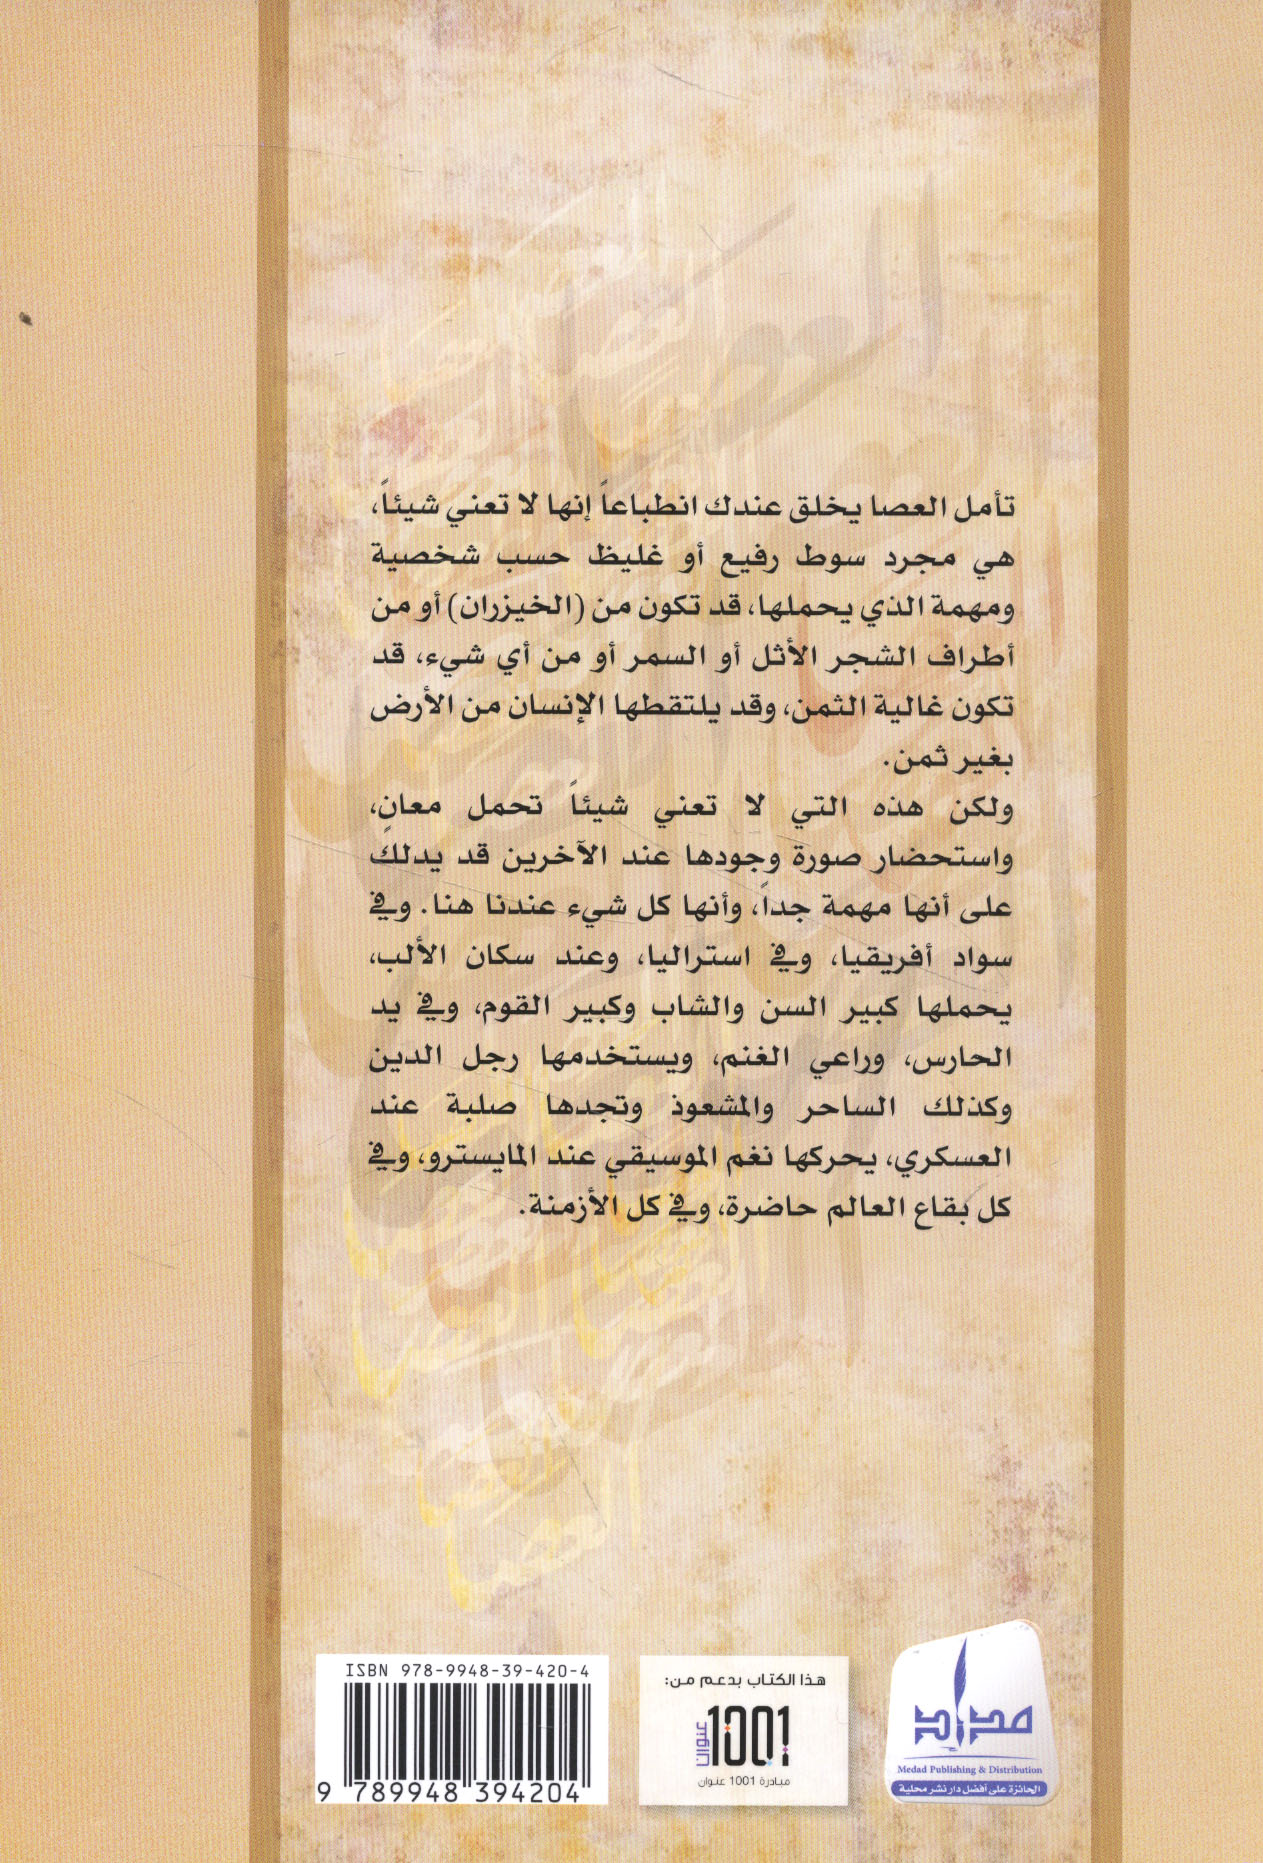 العصا
تأمل العصا يخلق عندك انطباعاً إنها لا تعني شيئاً،
هي مجرد سوط رفيع أو غليظ حسب شخصية
ومهمة الذي يحملها، قد تكون من (الخيزران) أو من
أطراف الشجر الأثل أو السمر أو من أي شيء، قد
تكون غالية الثمن، وقد يلتقطها الإنسان من الأرض
بغير ثمن.
ولكن هذه التي لا تعني شيئاً تحمل معانٍ،
واستحضار صورة وجودها عند الآخرين قد يدلك
على أنها مهمة جداً، وأنها كل شيء عندنا هنا. وفي
سواد أفريقيا، وفي استراليا، وعند سكان الألب،
يحملها كبير السن والشاب وكبير القوم، وفي يد
الحارس، وراعي الغنم، ويستخدمها رجل الدين
وكذلك الساحر والمشعوذ وتجدها صلبة عند
العسكري، يحركها نغم الموسيقي عند المايسترو، وفي
كل بقاع العالم حاضرة، وفي كل الأزمنة.
ISBN 978-9948-39-420-4
9 789948 394204
هذا الكتاب بدعم من:
1001 عنوان
مبادرة 1001 عنوان
مداد
Medad Publishing & Distribution
الحائزة على أفضل دار نشر محلية